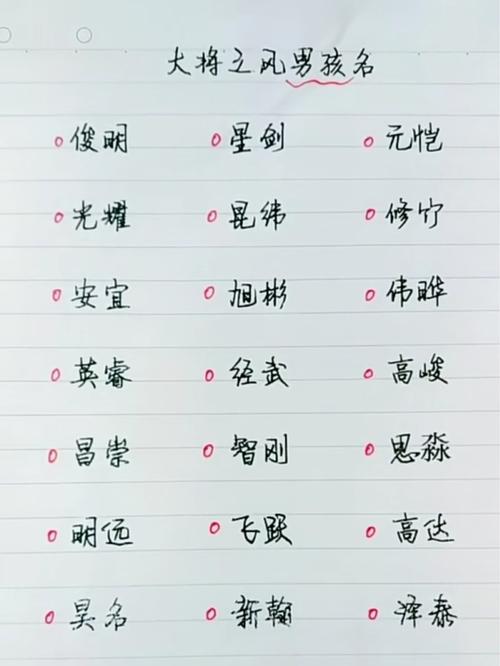 大将之风男孩名
俊明 星剑 元恺
光耀 昆纬 修竹
安宜 旭彬 伟晔
英睿 经武 高峻
昌崇 智刚 思淼
明远 飞跃 高达
昊名 新翰 泽泰